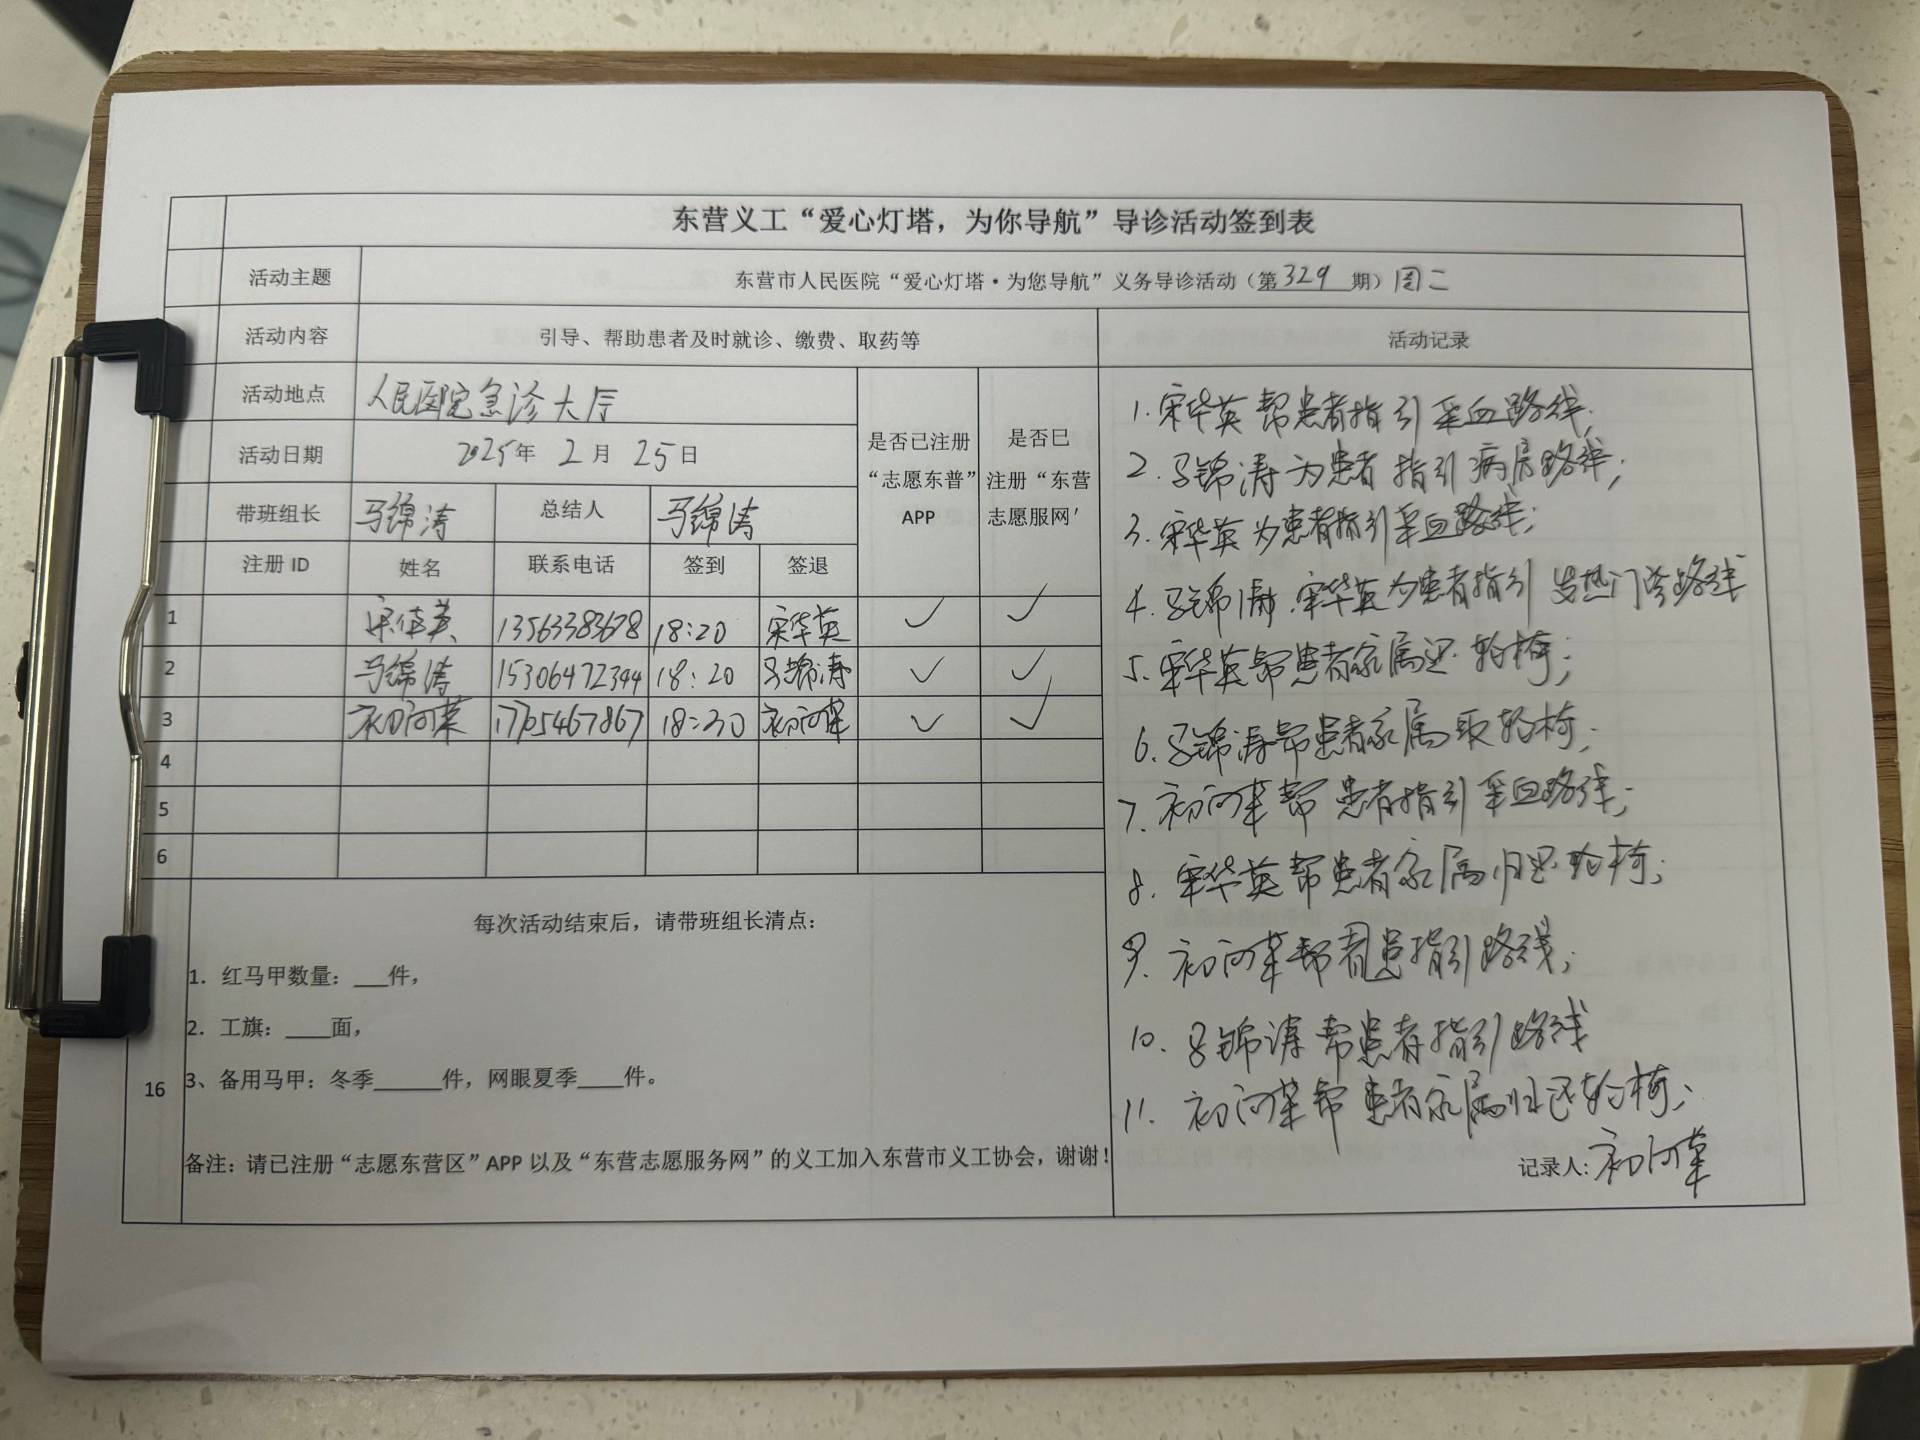 东营义工“爱心灯塔，为你导航”导诊活动签到表
活动主题 东营市人民医院“爱心灯塔·为您导航”义务导诊活动（第329期）周二
活动内容 引导、帮助患者及时就诊、缴费、取药等 活动记录
活动地点 人民医院急诊大厅
活动日期 2025年 2月 25日
带班组长 马锦涛 总结人 马锦涛
是否已注册
“志愿东普”
APP
是否已
注册“东营
志愿服网’
注册ID 姓名 联系电话 签到 签退
1 宋华英 13563383678 18:20 宋华英 ✓ ✓
2 马锦涛 15306472344 18:20 马锦涛 ✓ ✓
3 初 17705467867 18:30 初 ✓ ✓
4
5
6
每次活动结束后，请带班组长清点：
1. 红马甲数量：___件，
2. 工旗：____面，
16
3、备用马甲：冬季______件，网眼夏季____件。
备注：请已注册“志愿东营区”APP以及“东营志愿服务网”的义工加入东营市义工协会，谢谢！
1. 宋华英帮患者指引采血路线；
2. 马锦涛为患者指引病房路线；
3. 宋华英为患者指引采血路线；
4. 马锦涛.宋华英为患者指引发热门诊路线
5. 宋华英帮患者家属还轮椅；
6. 马锦涛帮患者家属取轮椅；
7. 初 帮患者指引采血路线；
8. 宋华英帮患者家属归还轮椅；
9. 初 帮 患指引路线；
10. 马锦涛帮患者指引路线
11. 初 帮患者家属归还轮椅；
记录人：初